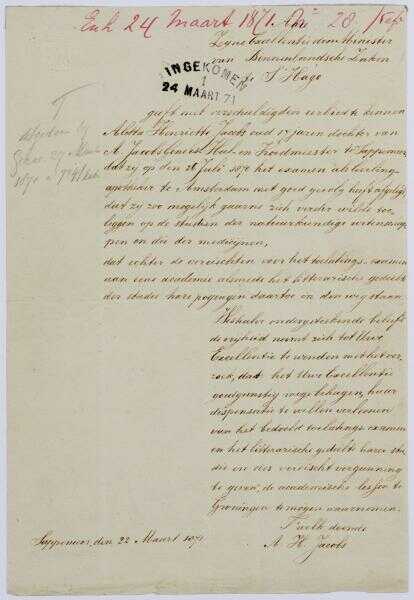 Exh 24 Maart 1871. No 28. Kab
Zijne Excellentie den Minister
van Binnenlandsche Zaken
te
S' Hage
INGEKOMEN
24 MAART 71
geeft met verschuldigden eerbied te kennen
Aletta Henriette Jacobs oud 17 jaren dochter van
A. Jacobs Genees Heel en Vroedmeester te Sappemeer,
dat zij op den 26 Juli 1870 het examen als leerling-
apotheker te Amsterdam met goed gevolg heeft afgelegd,
dat zij zoo mogelijk gaarne zich verder wilde toe-
leggen op de studien der natuurkundige wetenschap-
pen en die der medicijnen,
dat echter de vereischten voor het toelatings-examen
aan eene academie alsmede het litterarische gedeelte
der studie hare pogingen daartoe in den weg staan.
Weshalve ondergeteekende beleefd
de vrijheid neemt zich tot Uwe
Excellentie te wenden met het ver-
zoek, dat het Uwe Excellentie
goedgunstig moge behagen, haar
dispensatie te willen verleenen
van het bedoeld toelatings examen
en het litterarische gedeelte harer stu-
die en des vereischt vergunning
te geven, de academische lessen te
Groningen te mogen waarnemen.
't welk doende
Sappemeer, den 22 Maart 1871
A. H. Jacobs